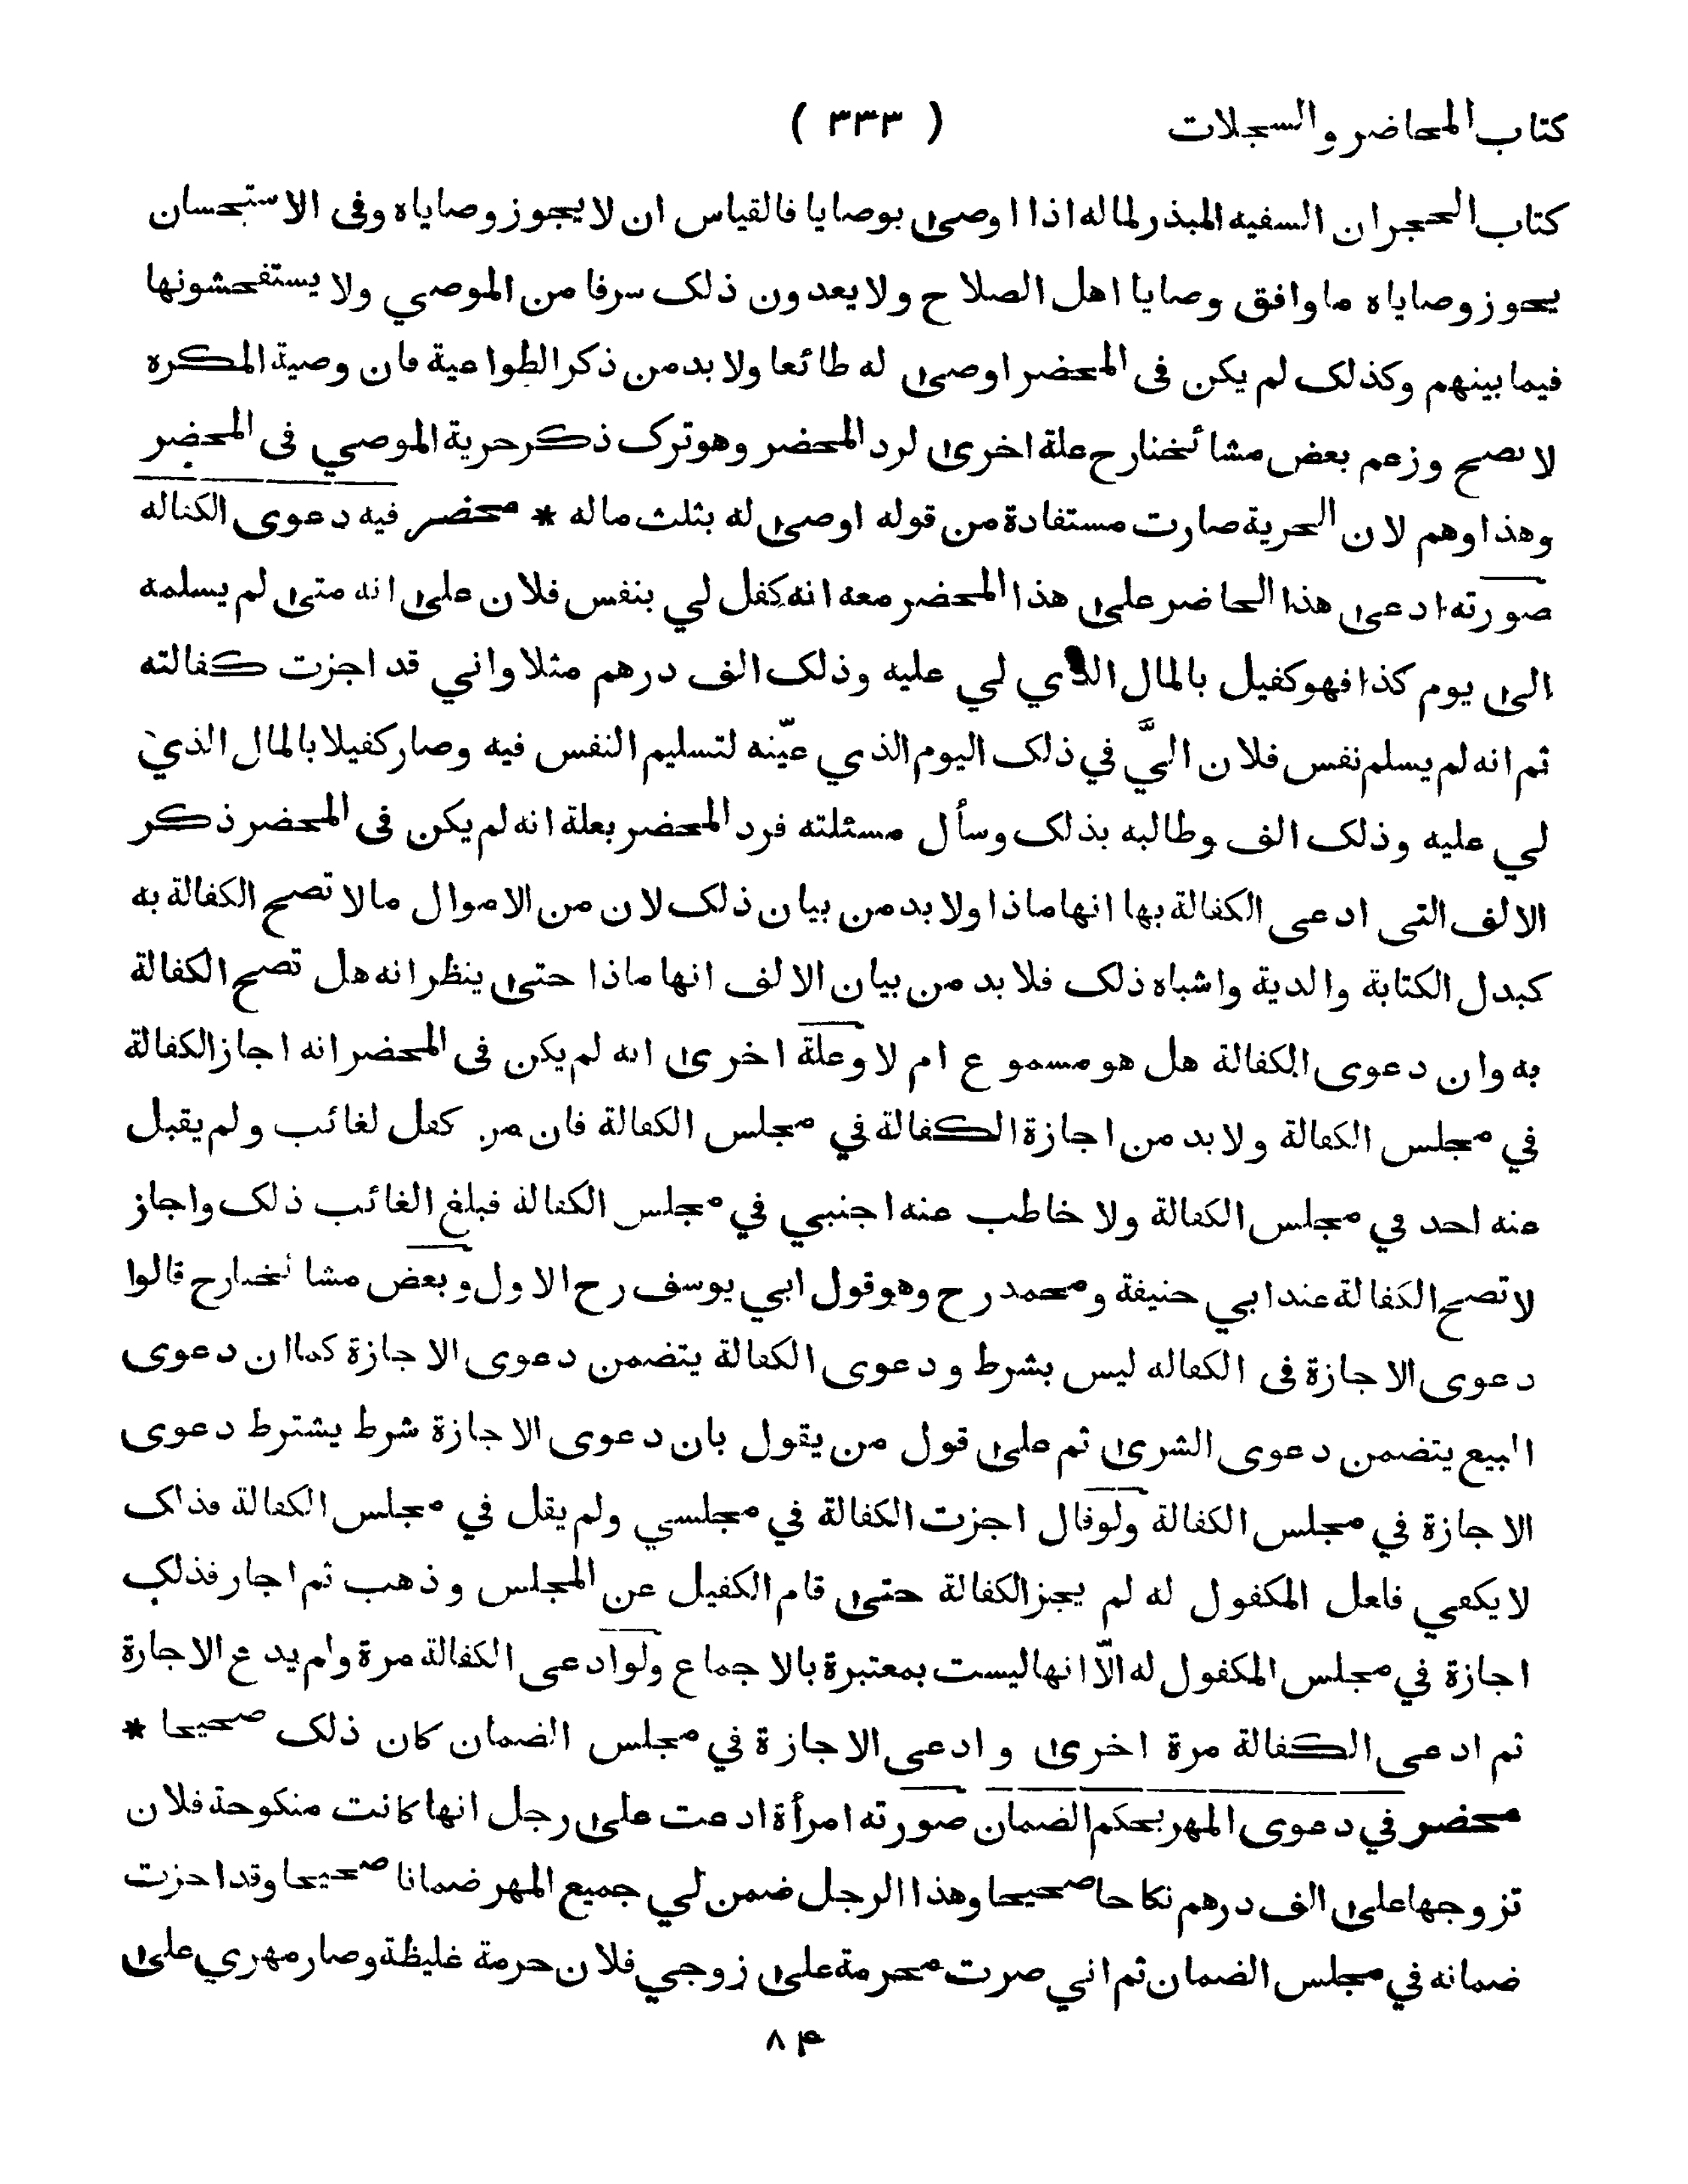 كتاب المحاضر والسجلات ( ٣٣٣ )
كتاب الحجر ان السفيه المبذر لماله اذا اوصى بوصايا فالقياس ان لا يجوز وصاياه وفى الاستحسان
يجوز وصاياه ما وافق وصايا اهل الصلاح ولا يعدون ذلك سرفا من الموصي ولا يستفحشونها
فيما بينهم وكذلك لم يكن فى المحضر اوصى له طائعا ولا بد من ذكر الطواعية فان وصية المكره
لا تصح وزعم بعض مشائخنا رح علة اخرى لرد المحضر وهو ترك ذكر حرية الموصي فى المحضر
وهذا وهم لان الحرية صارت مستفادة من قوله اوصى له بثلث ماله * محضر فيه دعوى الكفاله
صورته ادعى هذا الحاضر على هذا المحضر معه انه كفل لي بنفس فلان على انه متى لم يسلمه
الى يوم كذا فهو كفيل بالمال الذي لي عليه وذلك الف درهم مثلا واني قد اجزت كفالته
ثم انه لم يسلم نفس فلان اليَّ في ذلك اليوم الذي عيّنه لتسليم النفس فيه وصار كفيلا بالمال الذي
لي عليه وذلك الف وطالبه بذلك وسأل مسئلته فرد المحضر بعلة انه لم يكن فى المحضر ذكر
الالف التى ادعى الكفالة بها انها ماذا ولا بد من بيان ذلك لان من الاموال ما لا تصح الكفالة به
كبدل الكتابة والدية واشباه ذلك فلا بد من بيان الالف انها ماذا حتى ينظر انه هل تصح الكفالة
به وان دعوى الكفالة هل هو مسموع ام لا وعلة اخرى انه لم يكن فى المحضر انه اجاز الكفالة
في مجلس الكفالة ولا بد من اجازة الكفالة في مجلس الكفالة فان من كفل لغائب ولم يقبل
عنه احد في مجلس الكفالة ولا خاطب عنه اجنبي في مجلس الكفالة فبلغ الغائب ذلك واجاز
لا تصح الكفالة عند ابي حنيفة ومحمد رح وهو قول ابي يوسف رح الاول وبعض مشائخنا رح قالوا
دعوى الاجازة فى الكفاله ليس بشرط ودعوى الكفالة يتضمن دعوى الاجازة كما ان دعوى
البيع يتضمن دعوى الشرى ثم على قول من يقول بان دعوى الاجازة شرط يشترط دعوى
الاجازة في مجلس الكفالة ولو قال اجزت الكفالة في مجلسي ولم يقل في مجلس الكفالة فذاك
لا يكفي فلعل المكفول له لم يجز الكفالة حتى قام الكفيل عن المجلس وذهب ثم اجاز فذلك
اجازة في مجلس المكفول له الّا انها ليست بمعتبرة بالاجماع ولو ادعى الكفالة مرة ولم يدع الاجازة
ثم ادعى الكفالة مرة اخرى وادعى الاجازة في مجلس الضمان كان ذلك صحيحا *
محضر في دعوى المهر بحكم الضمان صورته امرأة ادعت على رجل انها كانت منكوحة فلان
تزوجها على الف درهم نكاحا صحيحا وهذا الرجل ضمن لي جميع المهر ضمانا صحيحا وقد اجزت
ضمانه في مجلس الضمان ثم اني صرت محرمة على زوجي فلان حرمة غليظة وصار مهري على
٨٤